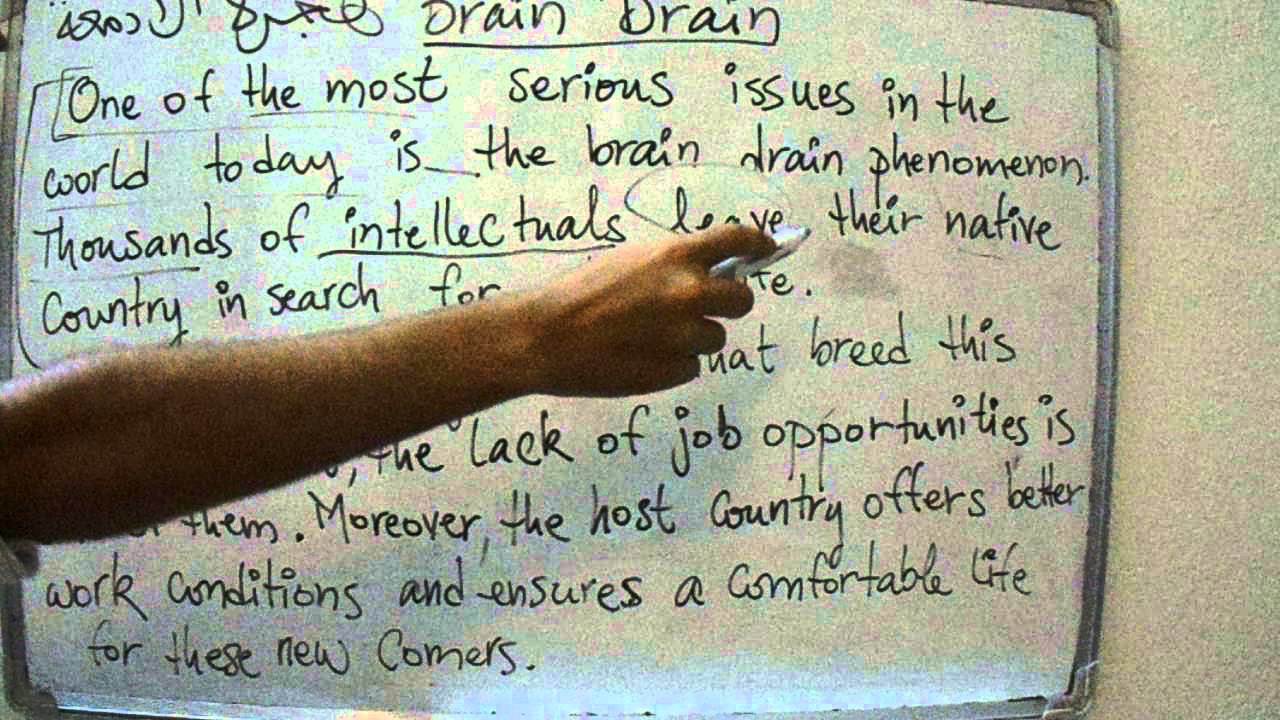 Brain Drain
One of the most serious issues in the
world today is the brain drain phenomenon.
Thousands of intellectuals leave their native
Country in search for
breed this
the lack of job opportunities is
them. Moreover, the host Country offers better
work conditions and ensures a comfortable life
for these new Comers.